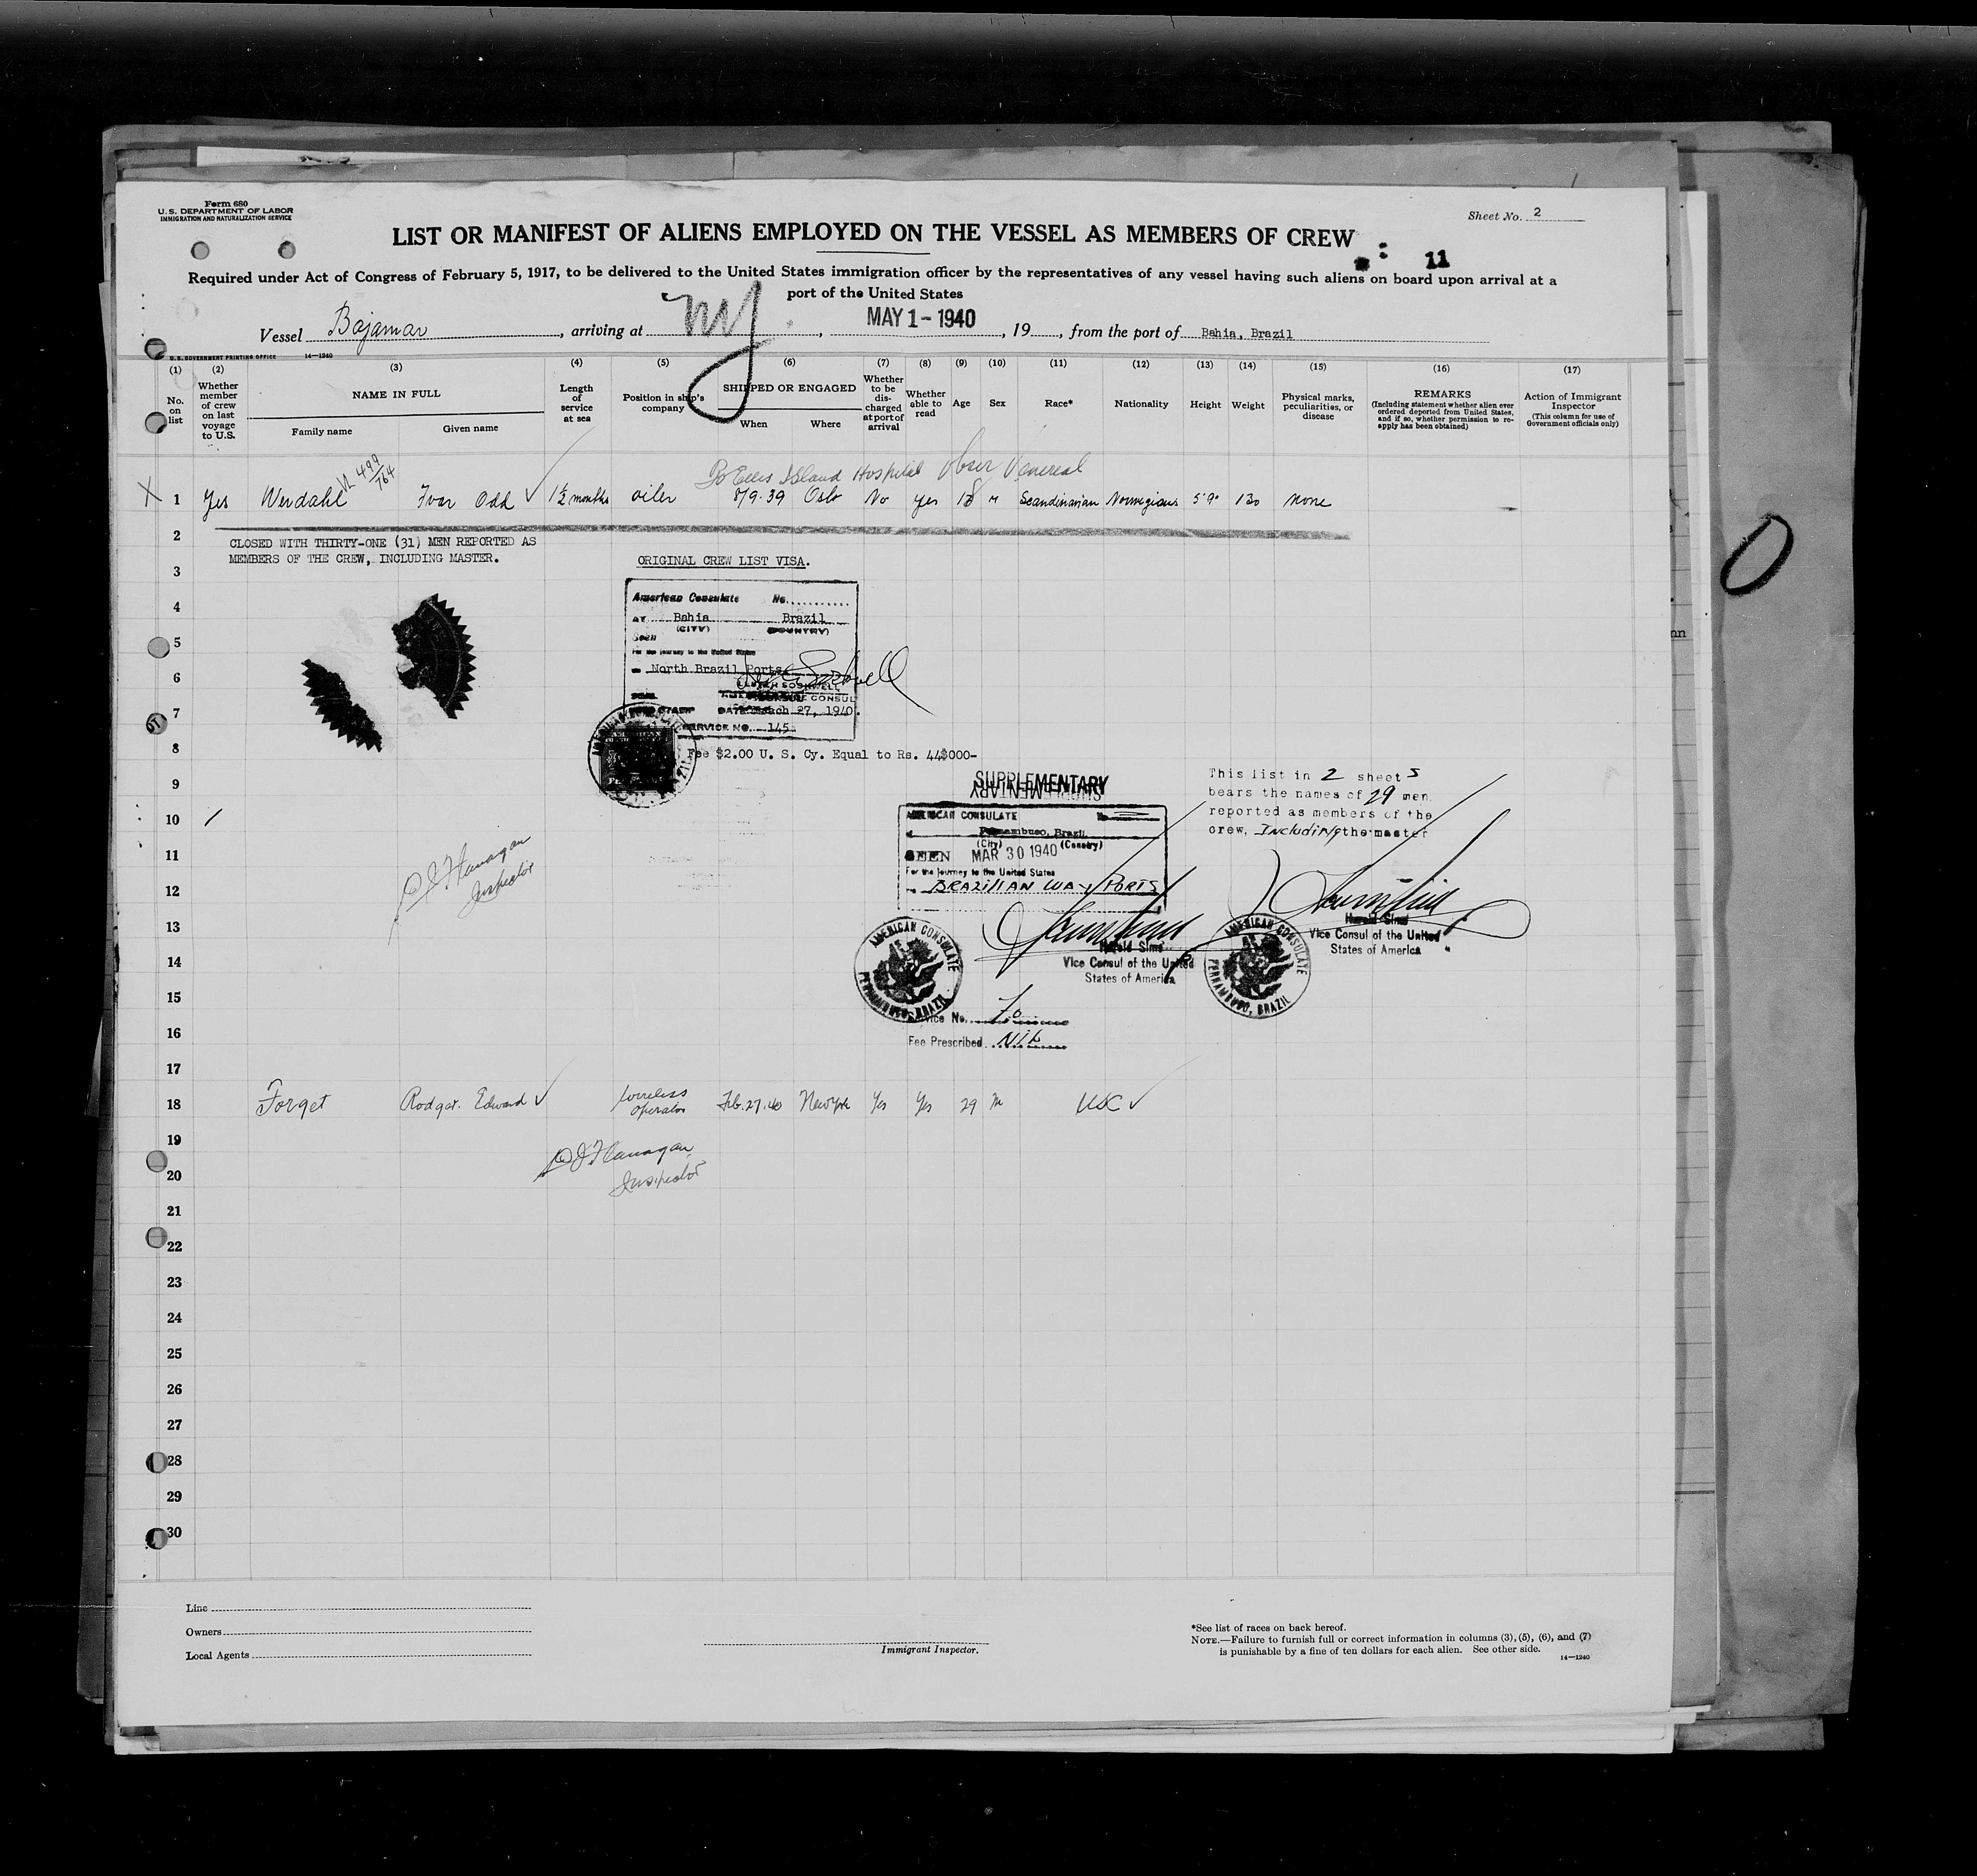 Form 680
U.S. DEPARTMENT OF LABOR
IMMIGRATION AND NATURALIZATION SERVICE
Sheet No. 2
LIST OR MANIFEST OF ALIENS EMPLOYED ON THE VESSEL AS MEMBERS OF CREW
11
Required under Act of Congress of February 5, 1917, to be delivered to the United States immigration officer by the representatives of any vessel having such aliens on board upon arrival at a
port of the United States
Vessel Bajamar, arriving at NY, MAY 1-1940, 19, from the port of Bahia, Brazil
U. S. GOVERNMENT PRINTING OFFICE 14—1240
(1) (2) (3) (4) (5) (6) (7) (8) (9) (10) (11) (12) (13) (14) (15) (16) (17)
No. on list
Whether member of crew on last voyage to U.S.
NAME IN FULL
Family name Given name
Length of service at sea
Position in ship's company
SHIPPED OR ENGAGED
When Where
Whether to be discharged at port of arrival
Whether able to read
Age
Sex
Race*
Nationality
Height
Weight
Physical marks, peculiarities, or disease
REMARKS
(Including statement whether alien ever ordered deported from United States, and if so, whether permission to reapply has been obtained)
Action of Immigrant Inspector
(This column for use of Government officials only)
499/764
To Ellis Island Hospital Obser Venereal
X 1 Yes Werdahl Ivar Odd 1½ months oiler 8/9-39 Oslo No Yes 18 M Scandinavian Norwegians 5'9" 130 none
2
CLOSED WITH THIRTY-ONE (31) MEN REPORTED AS
MEMBERS OF THE CREW, INCLUDING MASTER.
3
ORIGINAL CREW LIST VISA.
American Consulate No.
4
AT Bahia Brazil
(CITY) (COUNTRY)
5
Seen
For the journey to the United States
6
North Brazil Ports
CONSUL
7
DATE March 27, 1940.
SERVICE NO. 145
8
Fee $2.00 U. S. Cy. Equal to Rs. 44$000-
9
SUPPLEMENTARY
This list in 2 sheets
bears the names of 29 men
reported as members of the
crew, Including the master
10
AMERICAN CONSULATE
Pernambuco, Brazil
(City) (Country)
11
SEEN MAR 30 1940
For the journey to the United States
12
BRAZILIAN WAY PORTS
D J Flanagan
Inspector
13
AMERICAN CONSULATE
PERNAMBUCO, BRAZIL
Harold Sims
Vice Consul of the United
States of America
AMERICAN CONSULATE
PERNAMBUCO, BRAZIL
Harold Sims
Vice Consul of the United
States of America
14
15
Service No. 70
16
Fee Prescribed NIL
17
18 Forget Rodger Edward Wireless Operator Feb. 27. 40 New York Yes Yes 29 M USC
19
D J Flanagan
20
Inspector
21
22
23
24
25
26
27
28
29
30
Line
Owners
Local Agents
Immigrant Inspector.
*See list of races on back hereof.
NOTE.—Failure to furnish full or correct information in columns (3), (5), (6), and (7)
is punishable by a fine of ten dollars for each alien. See other side.
14—1240